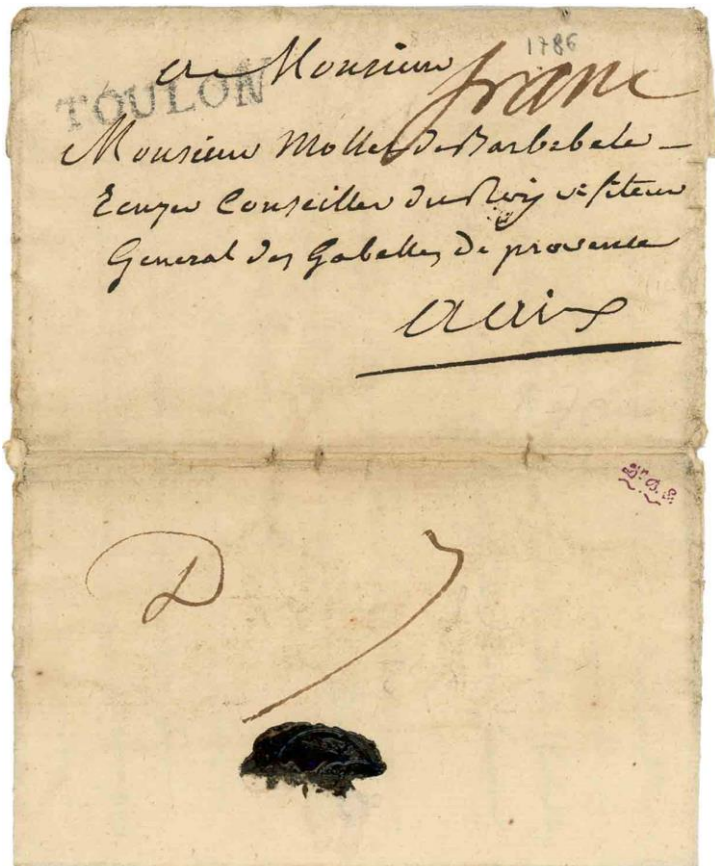 1786
a Monsieur franc
TOULON
Monsieur Mollet de Barbebele
Ecuyer Conseiller du Roy visiteur
General des Gabelles de provence
a aix
D 7